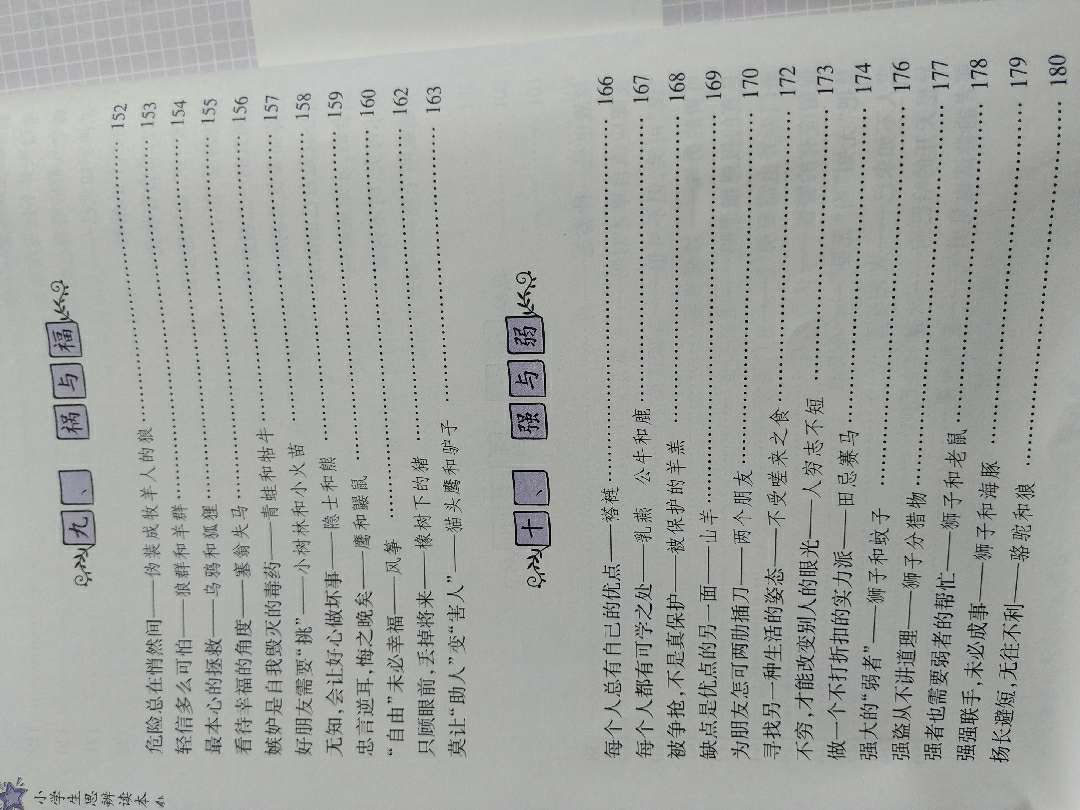 小学生思辨读本
九、祸与福
危险总在悄然间——伪装成牧羊人的狼……152
轻信多么可怕——狼群和羊群……153
最本心的拯救——乌鸦和狐狸……154
看待幸福的角度——塞翁失马……155
嫉妒是自我毁灭的毒药——青蛙和牯牛……156
好朋友需要“挑”——小树林和小火苗……157
无知,会让好心做坏事——隐士和熊……158
忠言逆耳,悔之晚矣——鹰和鼹鼠……159
“自由”未必幸福——风筝……160
只顾眼前,丢掉将来——橡树下的猪……162
莫让“助人”变“害人”——猫头鹰和驴子……163
十、强与弱
每个人总有自己的优点——褡裢……166
每个人都有可学之处——乳燕 公牛和鹿……167
被争抢,不是真保护——被保护的羊羔……168
缺点是优点的另一面——山羊……169
为朋友怎可两肋插刀——两个朋友……170
寻找另一种生活的姿态——不受嗟来之食……172
不穷,才能改变别人的眼光——人穷志不短……173
做一个不打折扣的实力派——田忌赛马……174
强大的“弱者”——狮子和蚊子……176
强盗从不讲道理——狮子分猎物……177
强者也需要弱者的帮忙——狮子和老鼠……178
强强联手,未必成事——狮子和海豚……179
扬长避短,无往不利——骆驼和狼……180